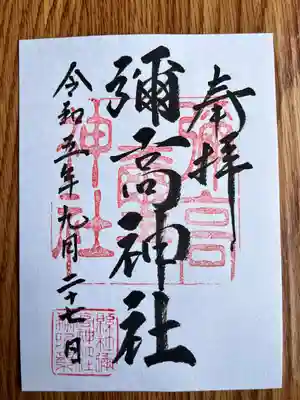 奉拝
彌高神社
令和五年九月二十七日
彌高神社